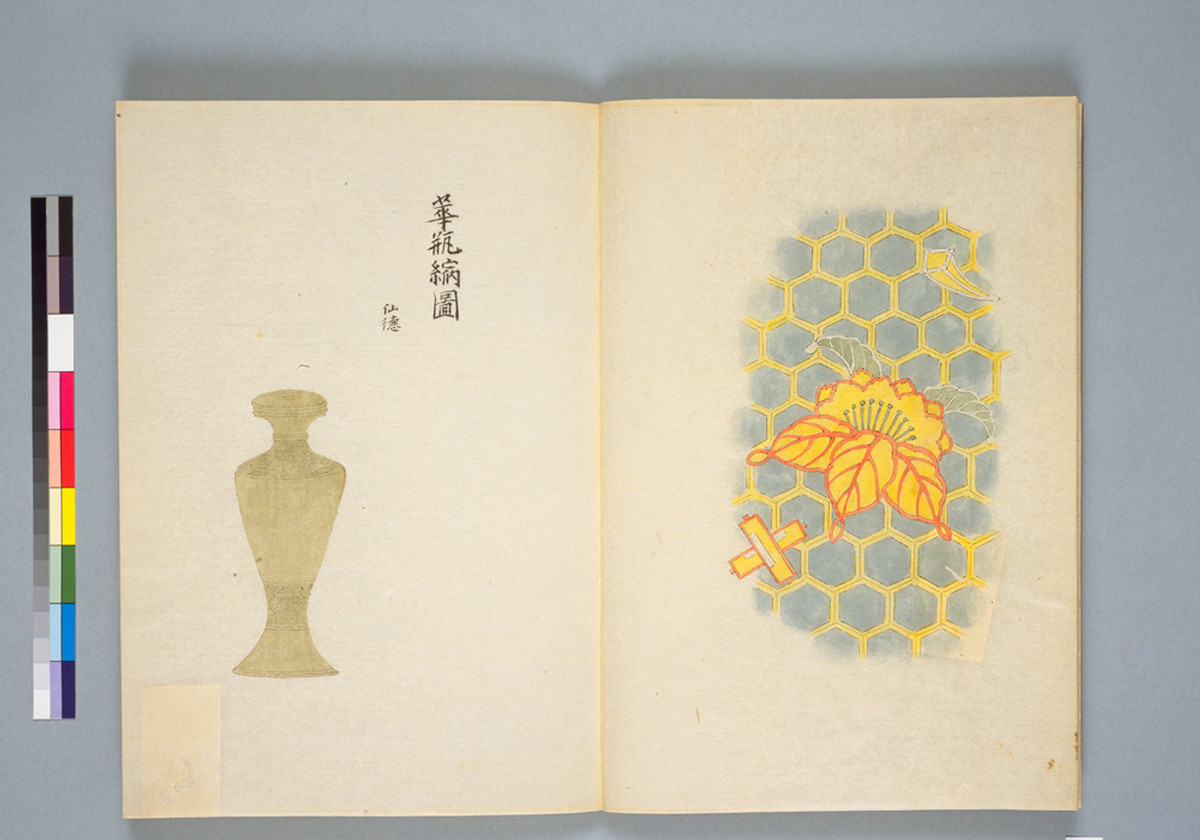 華瓶縮圖
仙德